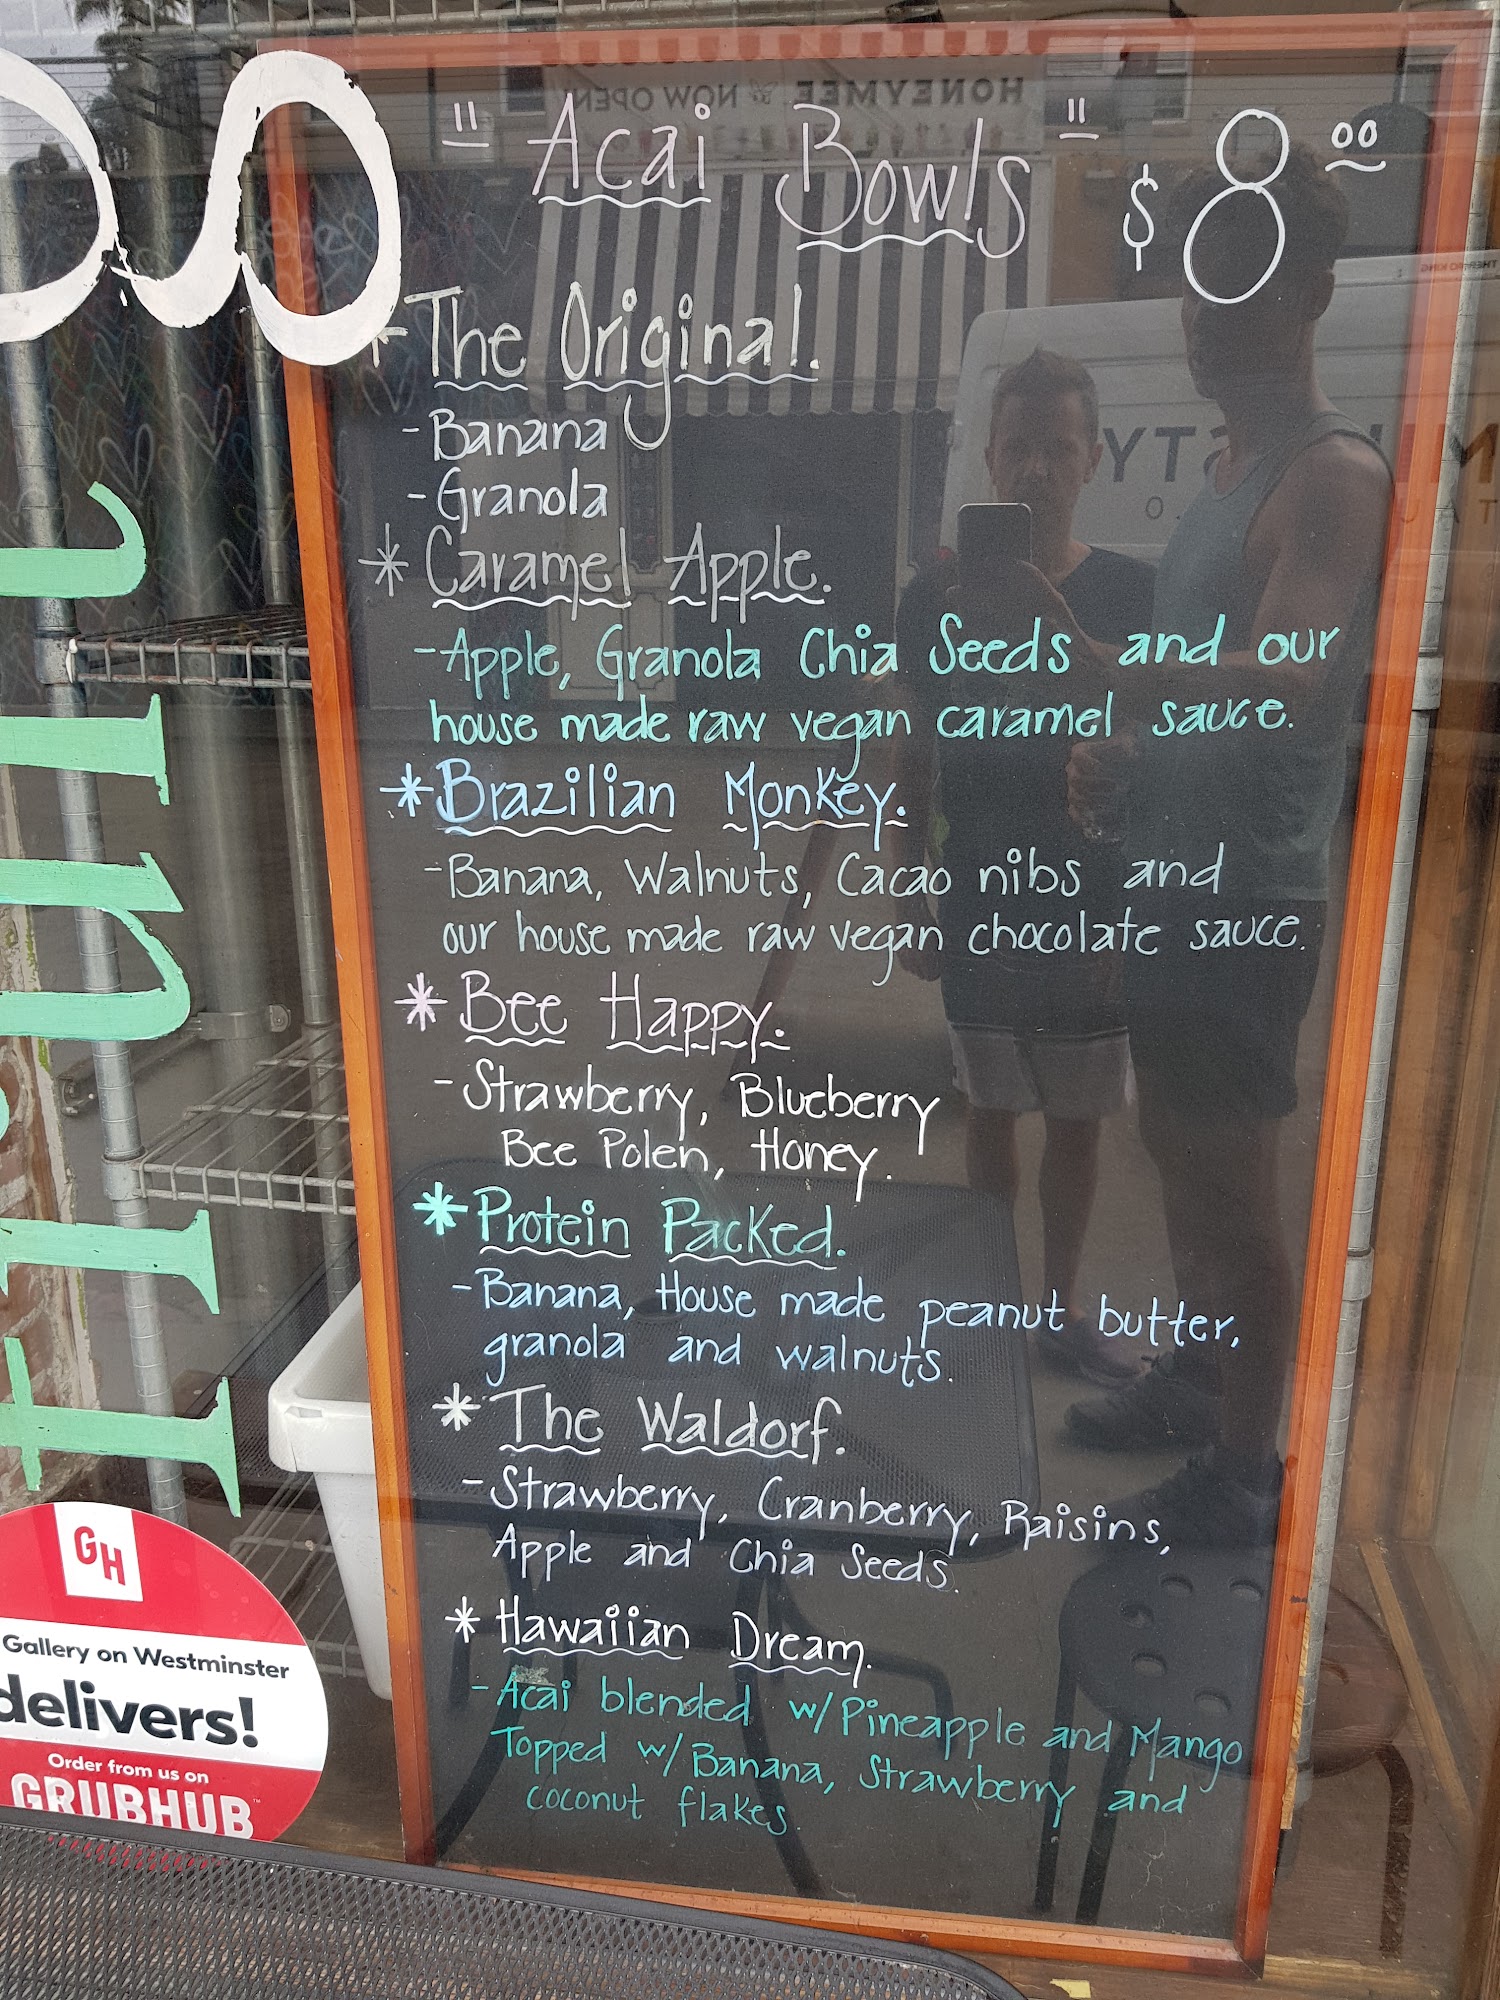 HONEYMEE NOW OPEN
" Acai Bowls " $8 00
* The Original.
- Banana
- Granola
* Caramel Apple.
- Apple, Granola Chia Seeds and our
house made raw vegan caramel sauce.
* Brazilian Monkey.
- Banana, Walnuts, Cacao nibs and
our house made raw vegan chocolate sauce.
* Bee Happy.
- Strawberry, Blueberry
Bee Polen, Honey.
* Protein Packed.
- Banana, House made peanut butter,
granola and walnuts.
* The Waldorf.
- Strawberry, Cranberry, Raisins,
Apple and Chia Seeds.
* Hawaiian Dream.
- Acai blended w/ Pineapple and Mango
Topped w/ Banana, Strawberry and
coconut flakes.
GH
Gallery on Westminster
delivers!
Order from us on
GRUBHUB